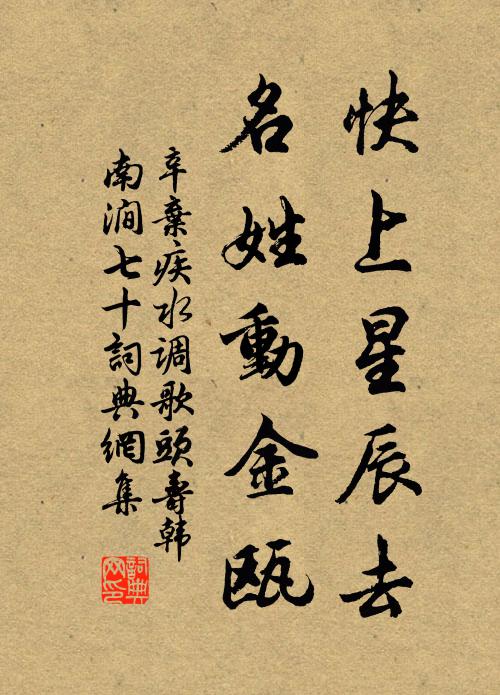 快上星辰去
名姓動金甌
辛棄疾水调歌頭壽韩
南澗七十詞典網集
詞典网印